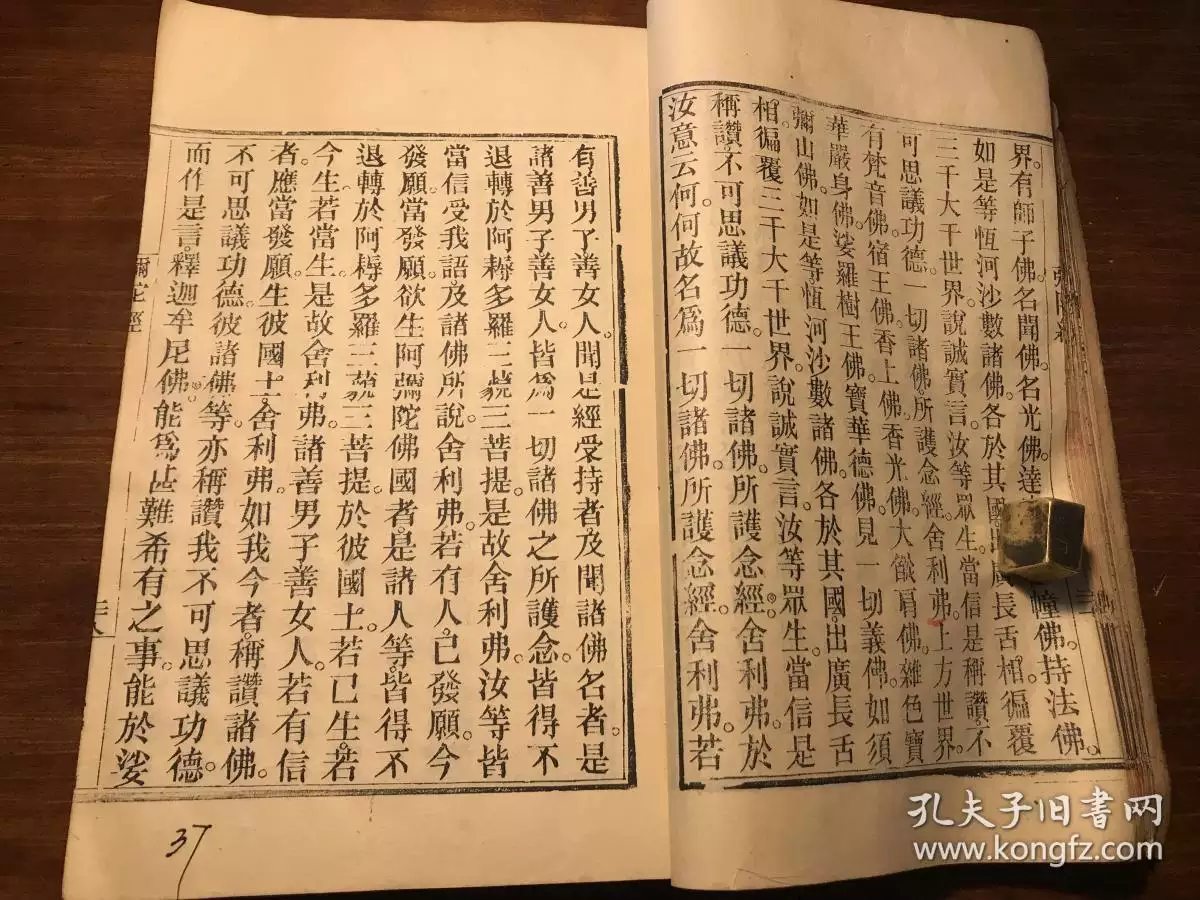 界。有師子佛。名聞佛。名光佛。達
幢佛。持法佛。
如是等恆河沙數諸佛。各於其國
廣長舌相。徧覆
三千大千世界。說誠實言。汝等眾生。當信是稱讚不
可思議功德。一切諸佛。所護念經。舍利弗。上方世界。
有梵音佛。宿王佛。香上佛。香光佛。大燄肩佛。雜色寶
華嚴身佛。娑羅樹王佛。寶華德佛。見一切義佛。如須
彌山佛。如是等恆河沙數諸佛。各於其國。出廣長舌
相。徧覆三千大千世界。說誠實言。汝等眾生。當信是
稱讚。不可思議功德。一切諸佛。所護念經。舍利弗。於
汝意云何。何故名爲一切諸佛。所護念經。舍利弗。若
有善男子善女人。聞是經受持者。及聞諸佛名者。是
諸善男子善女人。皆爲一切諸佛之所護念。皆得不
退轉於阿耨多羅三藐三菩提。是故舍利弗。汝等皆
當信受我語。及諸佛所說。舍利弗。若有人。已發願。今
發願。當發願。欲生阿彌陀佛國者。是諸人等。皆得不
退轉於阿耨多羅三藐三菩提。於彼國土。若已生。若
今生。若當生。是故舍利弗。諸善男子善女人。若有信
者。應當發願。生彼國土。舍利弗。如我今者。稱讚諸佛。
不可思議功德。彼諸佛等。亦稱讚我不可思議功德。
而作是言。釋迦牟尼佛。能爲甚難希有之事。能於娑
彌陀經
37
孔夫子旧书网
www.kongfz.com